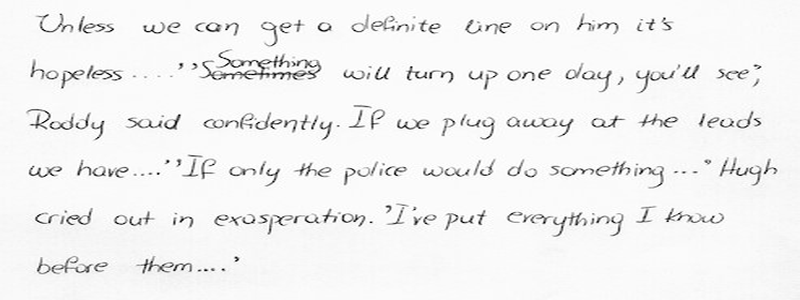 Unless we can get a definite line on him it's
hopeless ....' 'Something will turn up one day, you'll see,'
Roddy said confidently. If we plug away at the leads
we have....' 'If only the police would do something...' Hugh
cried out in exasperation. 'I've put everything I know
before them....'